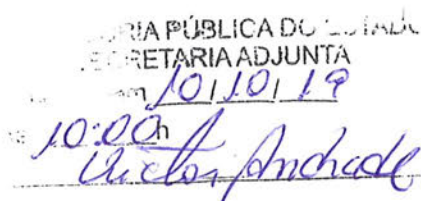 RIA PÚBLICA DO ESTADO
SECRETARIA ADJUNTA
em 10/10/19
10:00h
Victor Andrade